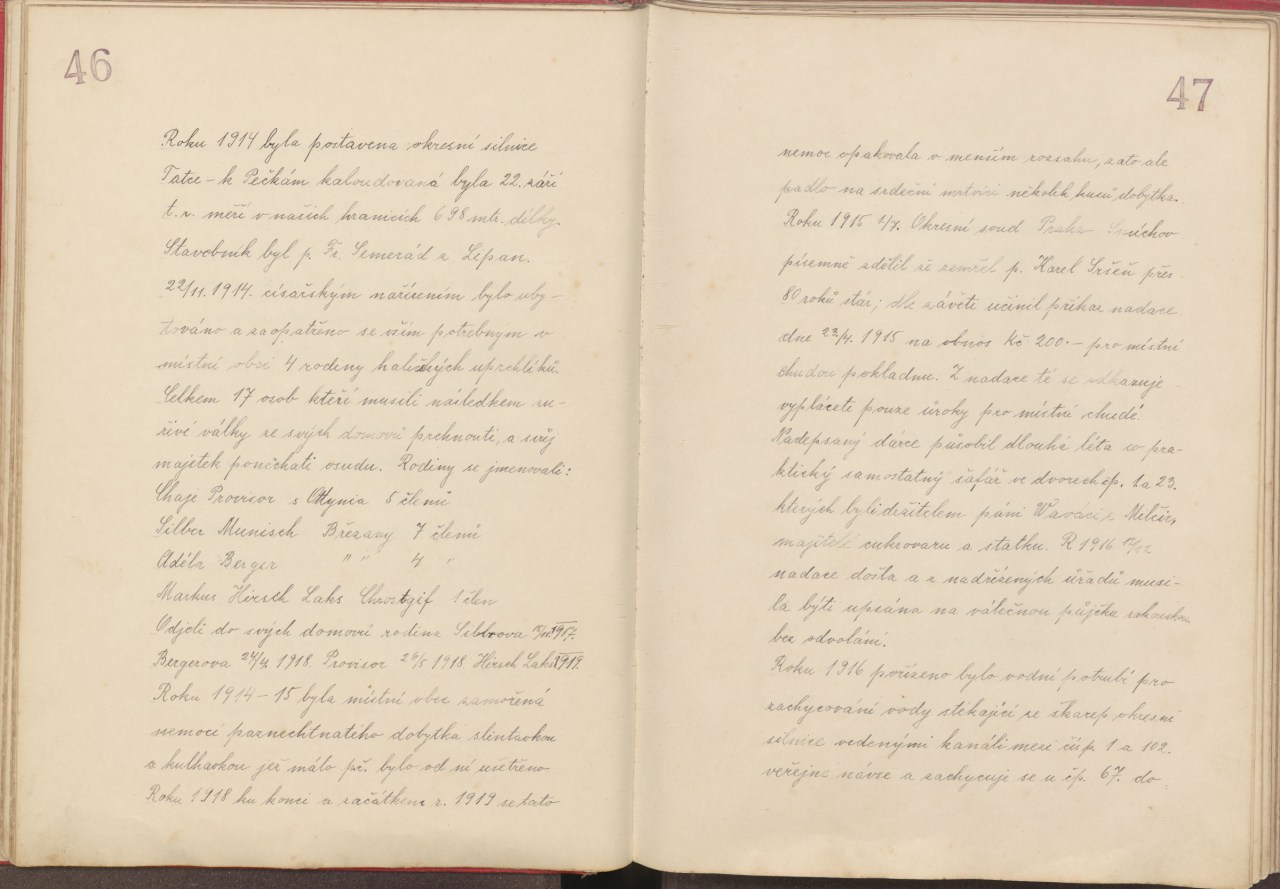 46
Roku 1914 byla postavena okresní silnice
Tatce – k Pečkám kaloudovaná byla 22. září
t. r. měří v našich hranicích 698 mtr. délky.
Stavebník byl p. Fr. Semerád z Lipan.
22/11. 1914. císařským nařízením bylo uby-
továno a zaopatřeno se vším potřebným v
místní obci 4 rodiny haličských uprchlíků.
Celkem 17 osob kteří musili následkem zu-
řivé války ze svých domovů prchnouti, a svůj
majetek ponechati osudu. Rodiny se jmenovali:
Chaje Provisor s Ottynia 5 členů
Silber Munisch Březany 7 členů
Adéla Berger " " 4 "
Markus Hirsch Laks 1 člen
Odjeli do svých domovů rodina Silbrova 1917.
Bergerova 24/4 1918. Provisor 26/5 1918 Hirsch Laks 1919.
Roku 1914 – 15 byla místní obec zamořená
nemocí paznechtnatého dobytka slintavkou
a kulhavkou jež málo pč. bylo od ní ušetřeno
Roku 1918 ku konci a začátkem r. 1919 se tato
47
nemoc opakovala v menším rozsahu, zato ale
padlo na srdeční mrtvici několik kusů dobytka.
Roku 1915 1/7. Okresní soud Praha Smíchov
písemně sdělil že zemřel p. Karel Sršeň přes
80 roků stár; dle závěti učinil příkaz nadace
dne 22/4. 1915 na obnos Kč 200.– pro místní
chudou pokladnu. Z nadace té se odkazuje
vypláceti pouze úroky pro místní chudé.
Nadepsaný dárce působil dlouhá léta co pra-
ktický samostatný šafář ve dvorech čp. 1 a 23.
kterých byli držitelem páni z Milčic,
majitelé cukrovaru a statku. R 1916 12/12
nadace došla a z nadřízených úřadů musi-
la býti upsána na válečnou půjčku rakouskou
bez odvolání.
Roku 1916 pořízeno bylo vodní potrubí pro
zachycování vody stékající ze škarep okresní
silnice vedenými kanáli mezi čís p. 1 a 102.
veřejné návze a zachycuje se u čp. 67. do